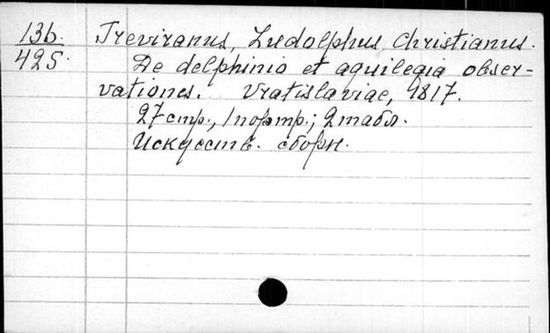 136.
425.
Treviranus, Ludolphus Christianus.
De delphinio et aquilegia obser-
vationes. Vratislaviae, 1817.
27 стр., 1 портр.; 2 табл.
Искусств. сборн.